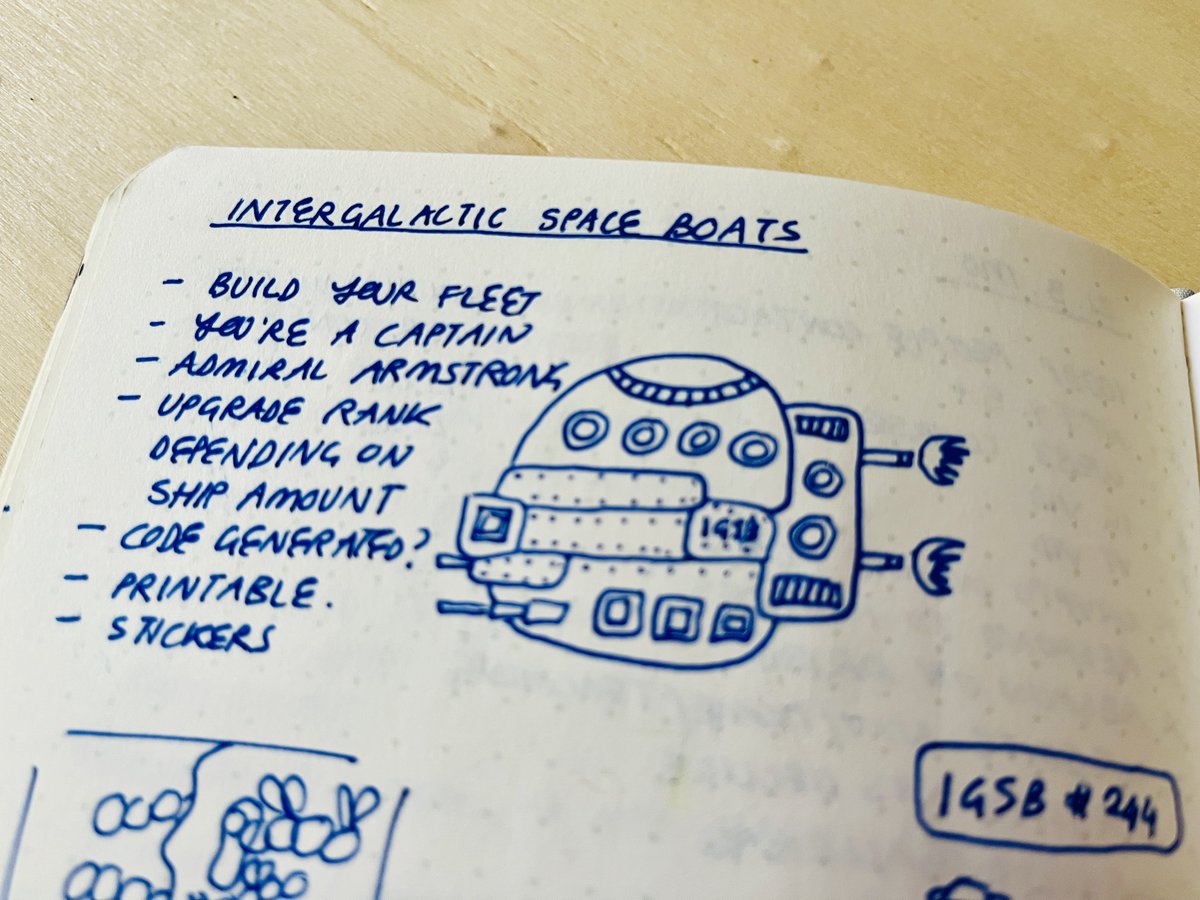 INTERGALACTIC SPACE BOATS
- BUILD YOUR FLEET
- YOU'RE A CAPTAIN
- ADMIRAL ARMSTRONG
- UPGRADE RANK
DEPENDING ON
SHIP AMOUNT
- CODE GENERATED?
- PRINTABLE.
- STICKERS
IGSB
IGSB # 244